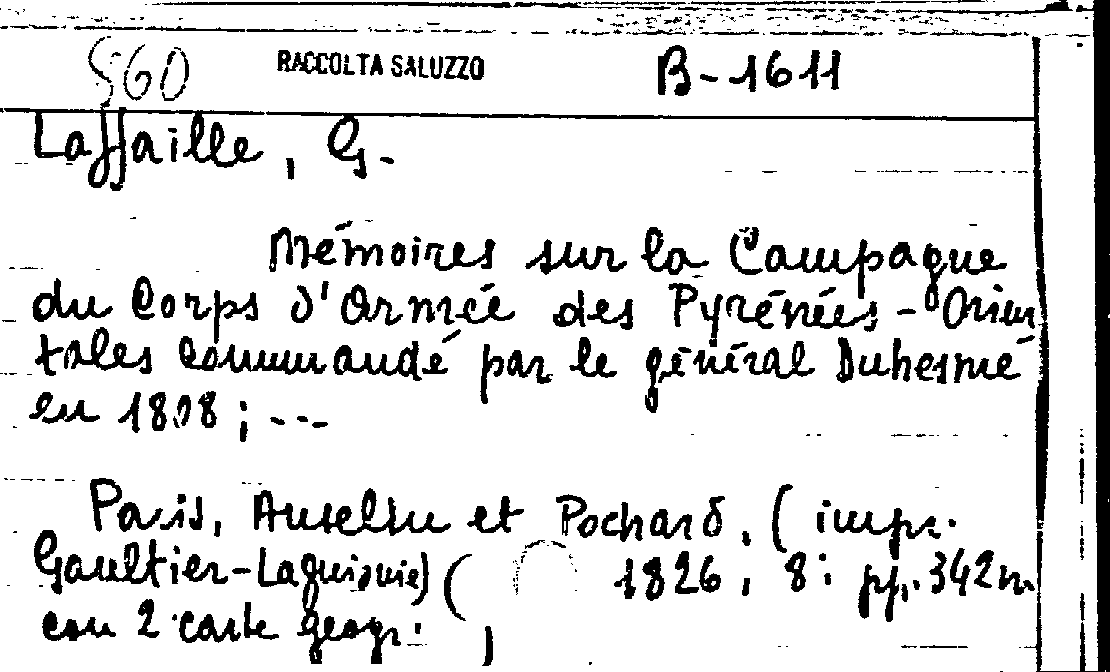 560 RACCOLTA SALUZZO B-1611
Laffaille, G.
Mémoires sur la Campagne
du Corps d'Armée des Pyrénées-Orien
tales commandé par le général Duhesmé
en 1808; ---
Paris, Anselin et Pochard, (impr.
Gaultier-Laguionie) ( 1826, 8: pp. 342
con 2 carte geogr. )